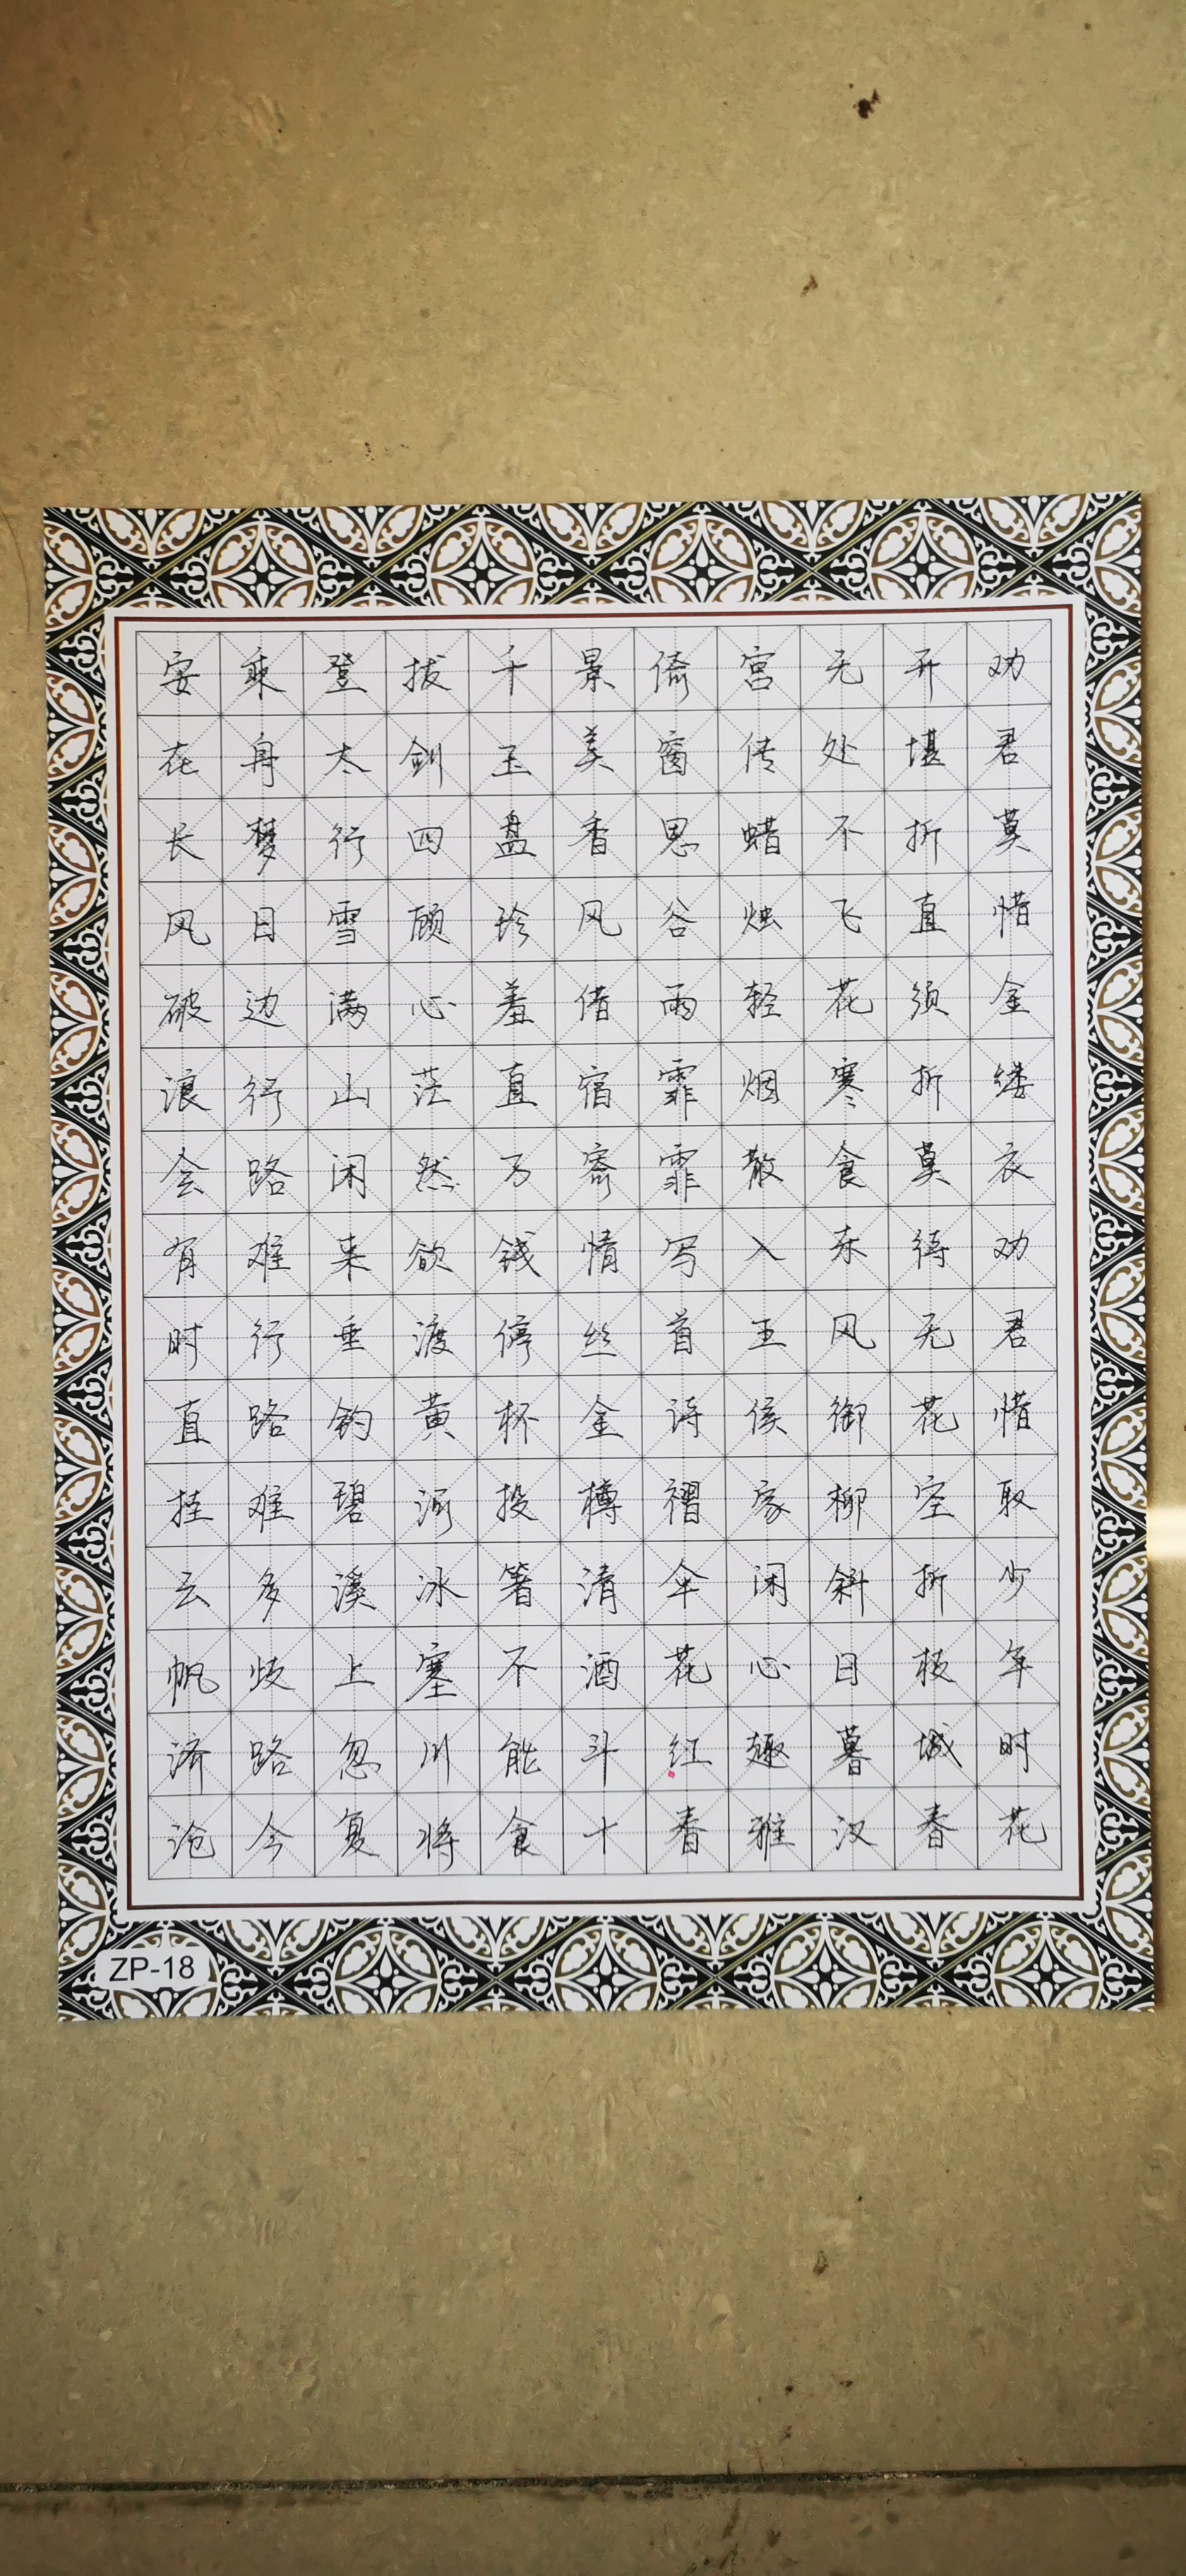 劝君莫惜金缕衣劝君惜取少年时花
开堪折直须折莫待无花空折枝城春
无处不飞花寒食东风御柳斜日暮汉
宫传蜡烛轻烟散入王侯家闲心趣雅
倚窗思谷雨霏霏写首诗褶伞花红春
景美香风借宿寄情丝金樽清酒斗十
千玉盘珍羞直万钱停杯投箸不能食
拔剑四顾心茫然欲渡黄河冰塞川将
登太行雪满山闲来垂钓碧溪上忽复
乘舟梦日边行路难行路难多歧路今
安在长风破浪会有时直挂云帆济沧
ZP-18